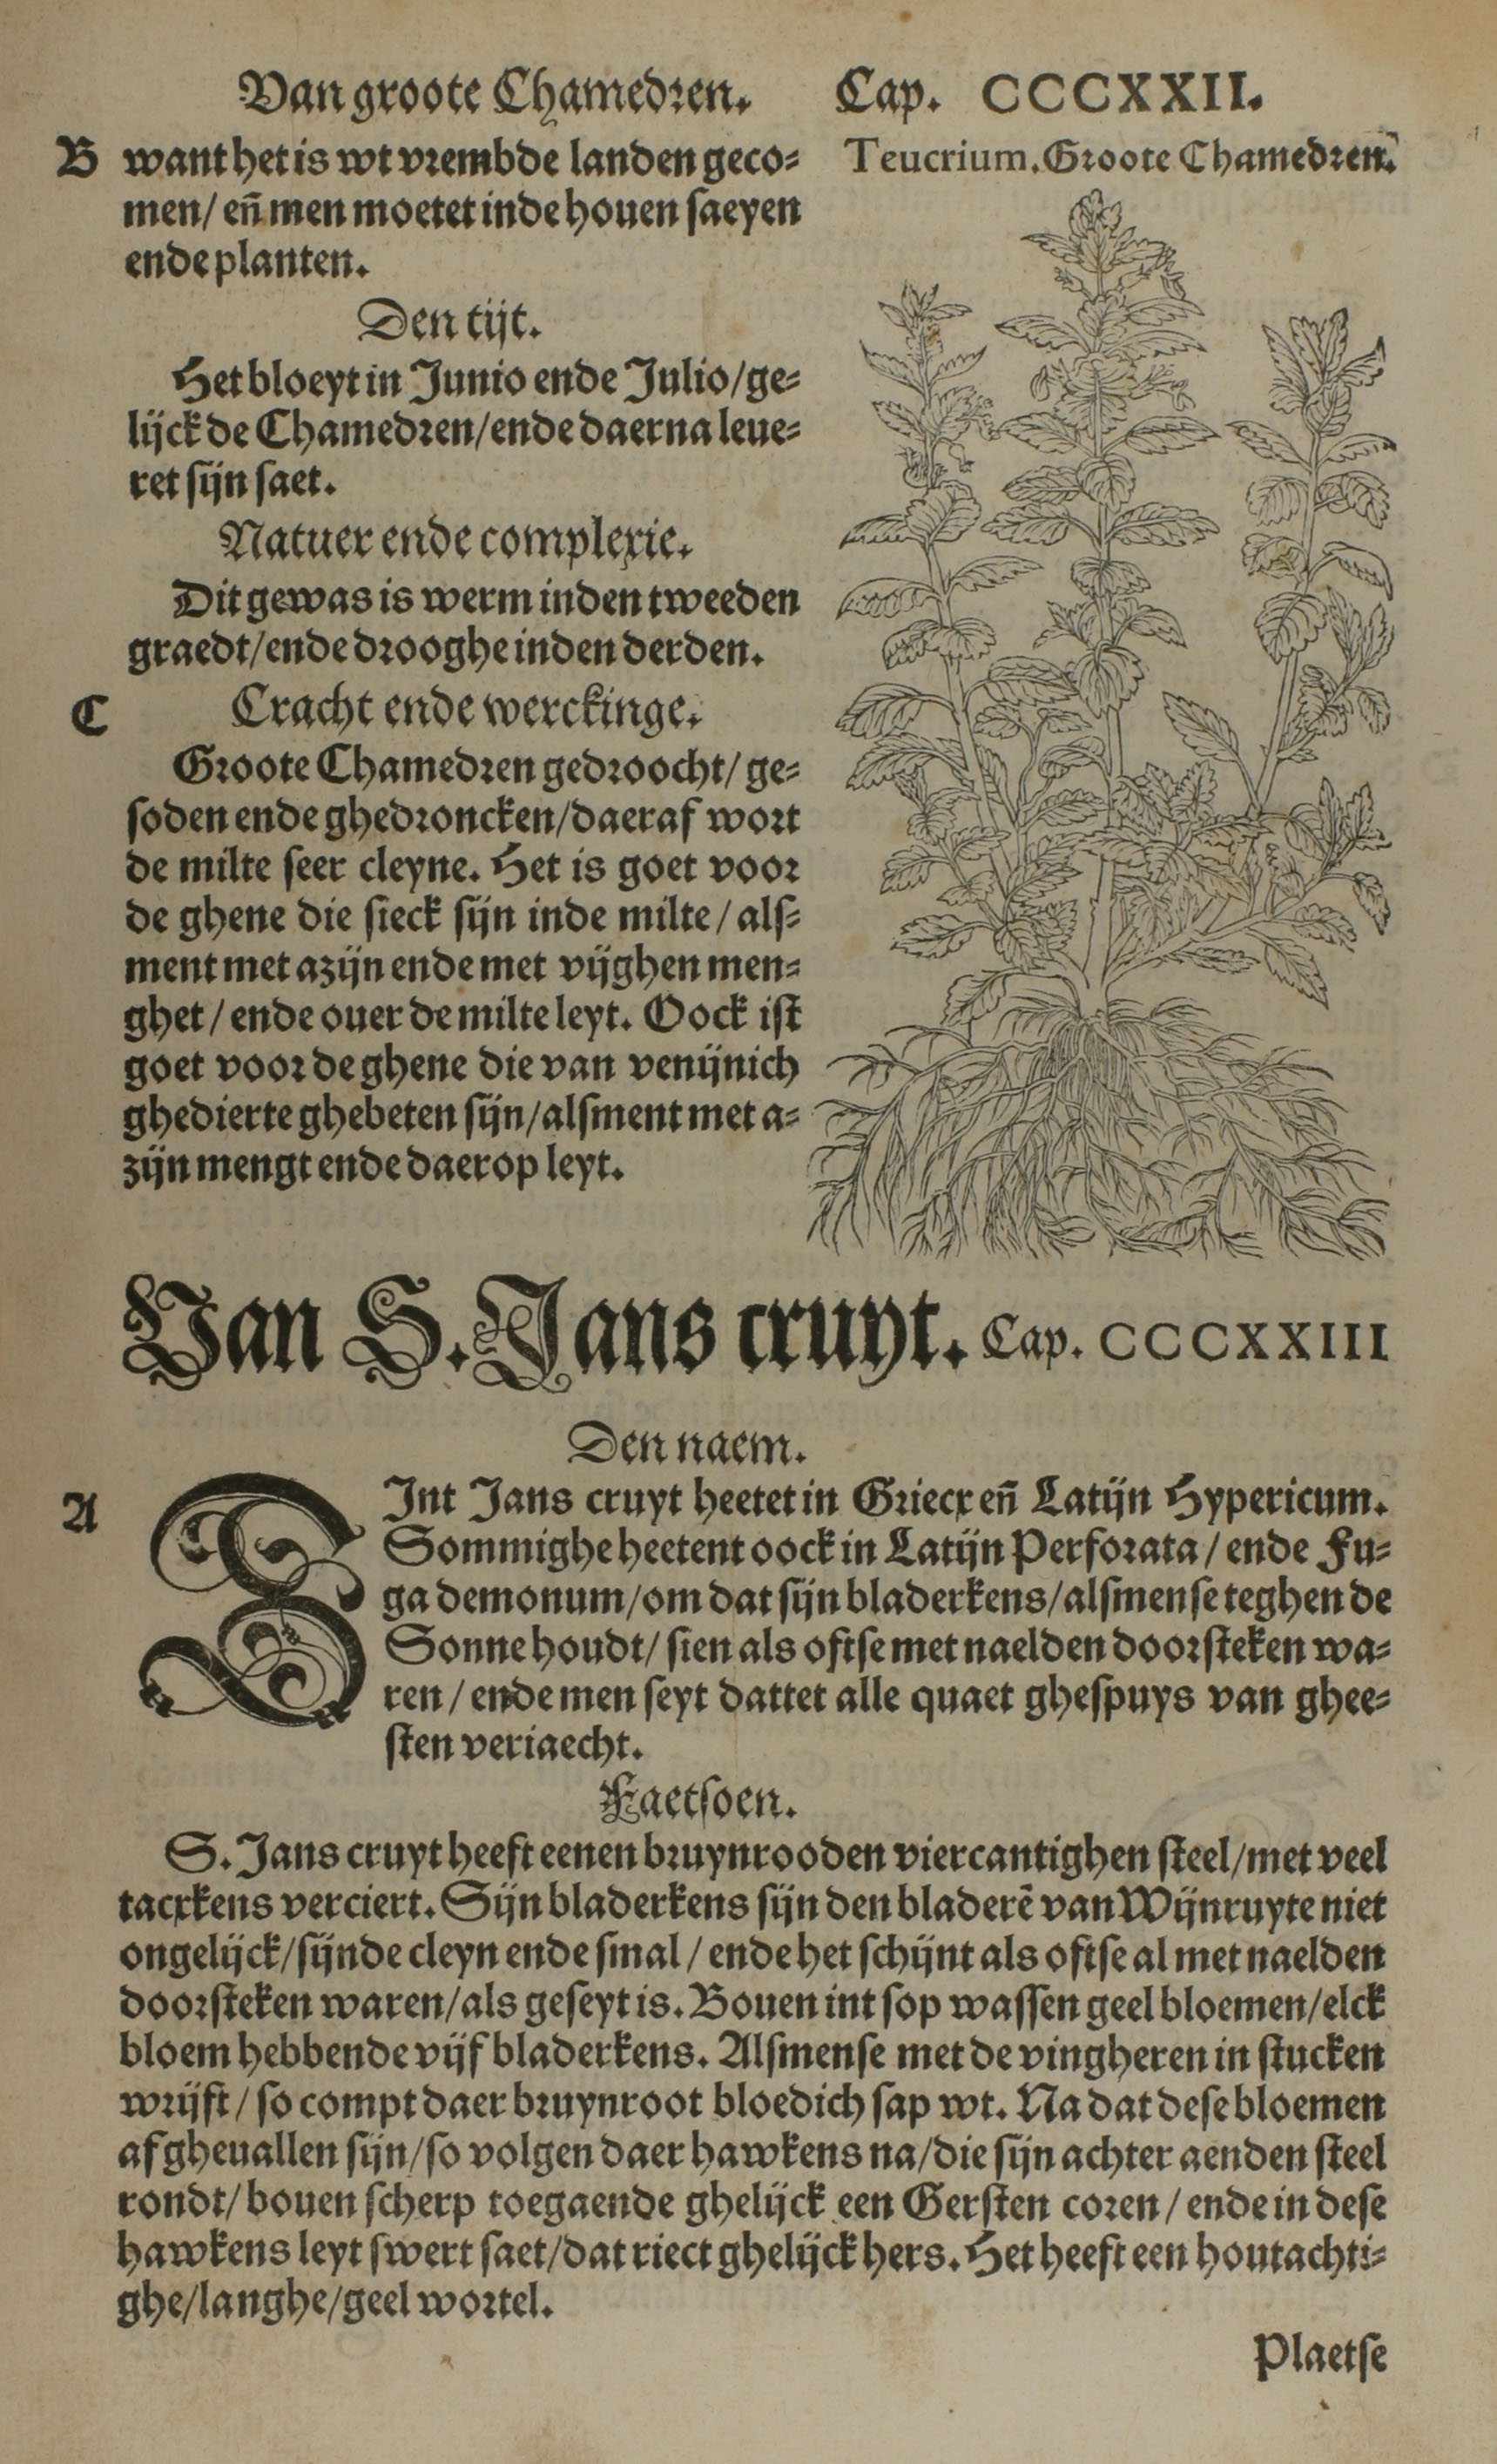 Van groote Chamedren. Cap. CCCXXII.
B want het is wt vrembde landen geco=
men/ en̄ men moetet inde houen saeyen
ende planten.
Den tijt.
Het bloeyt in Junio ende Julio/ge=
lijck de Chamedren/ende daerna leue=
ret sijn saet.
Natuer ende complexie.
Dit gewas is werm inden tweeden
graedt/ende drooghe inden derden.
C Cracht ende werckinge.
Groote Chamedren gedroocht/ ge=
soden ende ghedroncken/daeraf wort
de milte seer cleyne. Het is goet voor
de ghene die sieck sijn inde milte/ als=
ment met azijn ende met vijghen men=
ghet/ ende ouer de milte leyt. Oock ist
goet voor de ghene die van venijnich
ghedierte ghebeten sijn/alsment met a=
zijn mengt ende daerop leyt.
Teucrium. Groote Chamedren.
Van S. Jans cruyt. Cap. CCCXXIII
Den naem.
A SInt Jans cruyt heetet in Griecx en̄ Latijn Hypericum.
Sommighe heetent oock in Latijn Perforata/ ende Fu=
ga demonum/om dat sijn bladerkens/alsmense teghen de
Sonne houdt/ sien als oftse met naelden doorsteken wa=
ren/ ende men seyt dattet alle quaet ghespuys van ghee=
sten veriaecht.
Faetsoen.
S. Jans cruyt heeft eenen bruynrooden viercantighen steel/met veel
tacxkens verciert. Sijn bladerkens sijn den bladerē van Wijnruyte niet
ongelijck/sijnde cleyn ende smal/ ende het schijnt als oftse al met naelden
doorsteken waren/als geseyt is. Bouen int sop wassen geel bloemen/elck
bloem hebbende vijf bladerkens. Alsmense met de vingheren in stucken
wrijft/ so compt daer bruynroot bloedich sap wt. Na dat dese bloemen
afgheuallen sijn/so volgen daer hawkens na/die sijn achter aenden steel
rondt/ bouen scherp toegaende ghelijck een Gersten coren/ ende in dese
hawkens leyt swert saet/dat riect ghelijck hers. Het heeft een houtachti=
ghe/langhe/geel wortel.
Plaetse